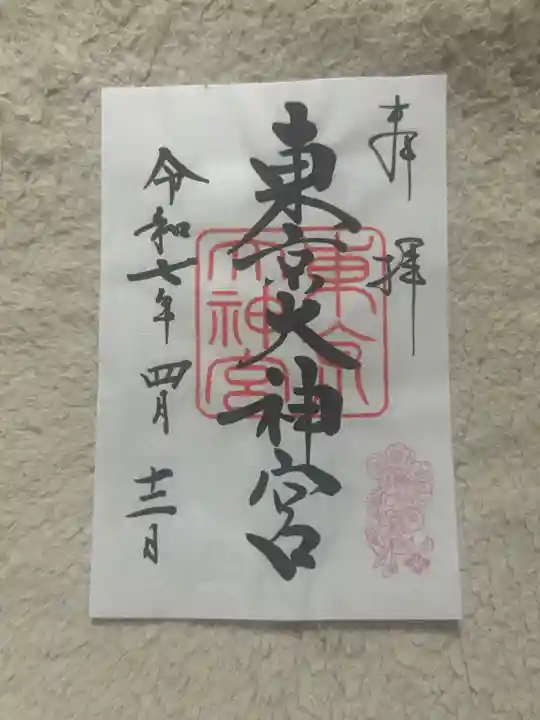 奉拝
東京大神宮
令和七年四月十三日
東京大神宮